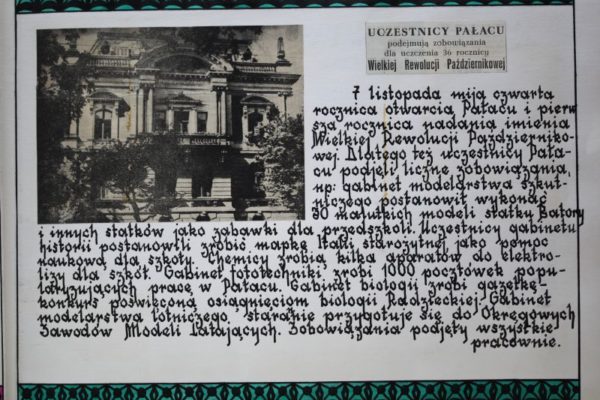 UCZESTNICY PAŁACU
podejmują zobowiązania
dla uczczenia 36 rocznicy
Wielkiej Rewolucji Październikowej
7 listopada mija czwarta
rocznica otwarcia Pałacu i pierw
sza rocznica nadania imienia
Wielkiej Rewolucji Październiko-
wej. Dlatego też uczestnicy Pała-
cu podjęli liczne zobowiązania,
np: gabinet modelarstwa szkut-
niczego postanowił wykonać
30 malutkich modeli statku Batory
i innych statków jako zabawki dla przedszkoli. Uczestnicy gabinetu
historii postanowili zrobić mapkę Italii starożytnej jako pomoc
naukową dla szkoły. Chemicy zrobią kilka aparatów do elektro-
lizy dla szkół. Gabinet fototechniki zrobi 1000 pocztówek popu-
laryzujących pracę w Pałacu. Gabinet biologii zrobi gazetkę-
konkurs poświęconą osiągnięciom biologii Radzieckiej. Gabinet
modelarstwa lotniczego staranie przygotuje się do Okręgowych
Zawodów Modeli Latających. Zobowiązania podjęty wszystkie
pracownie.